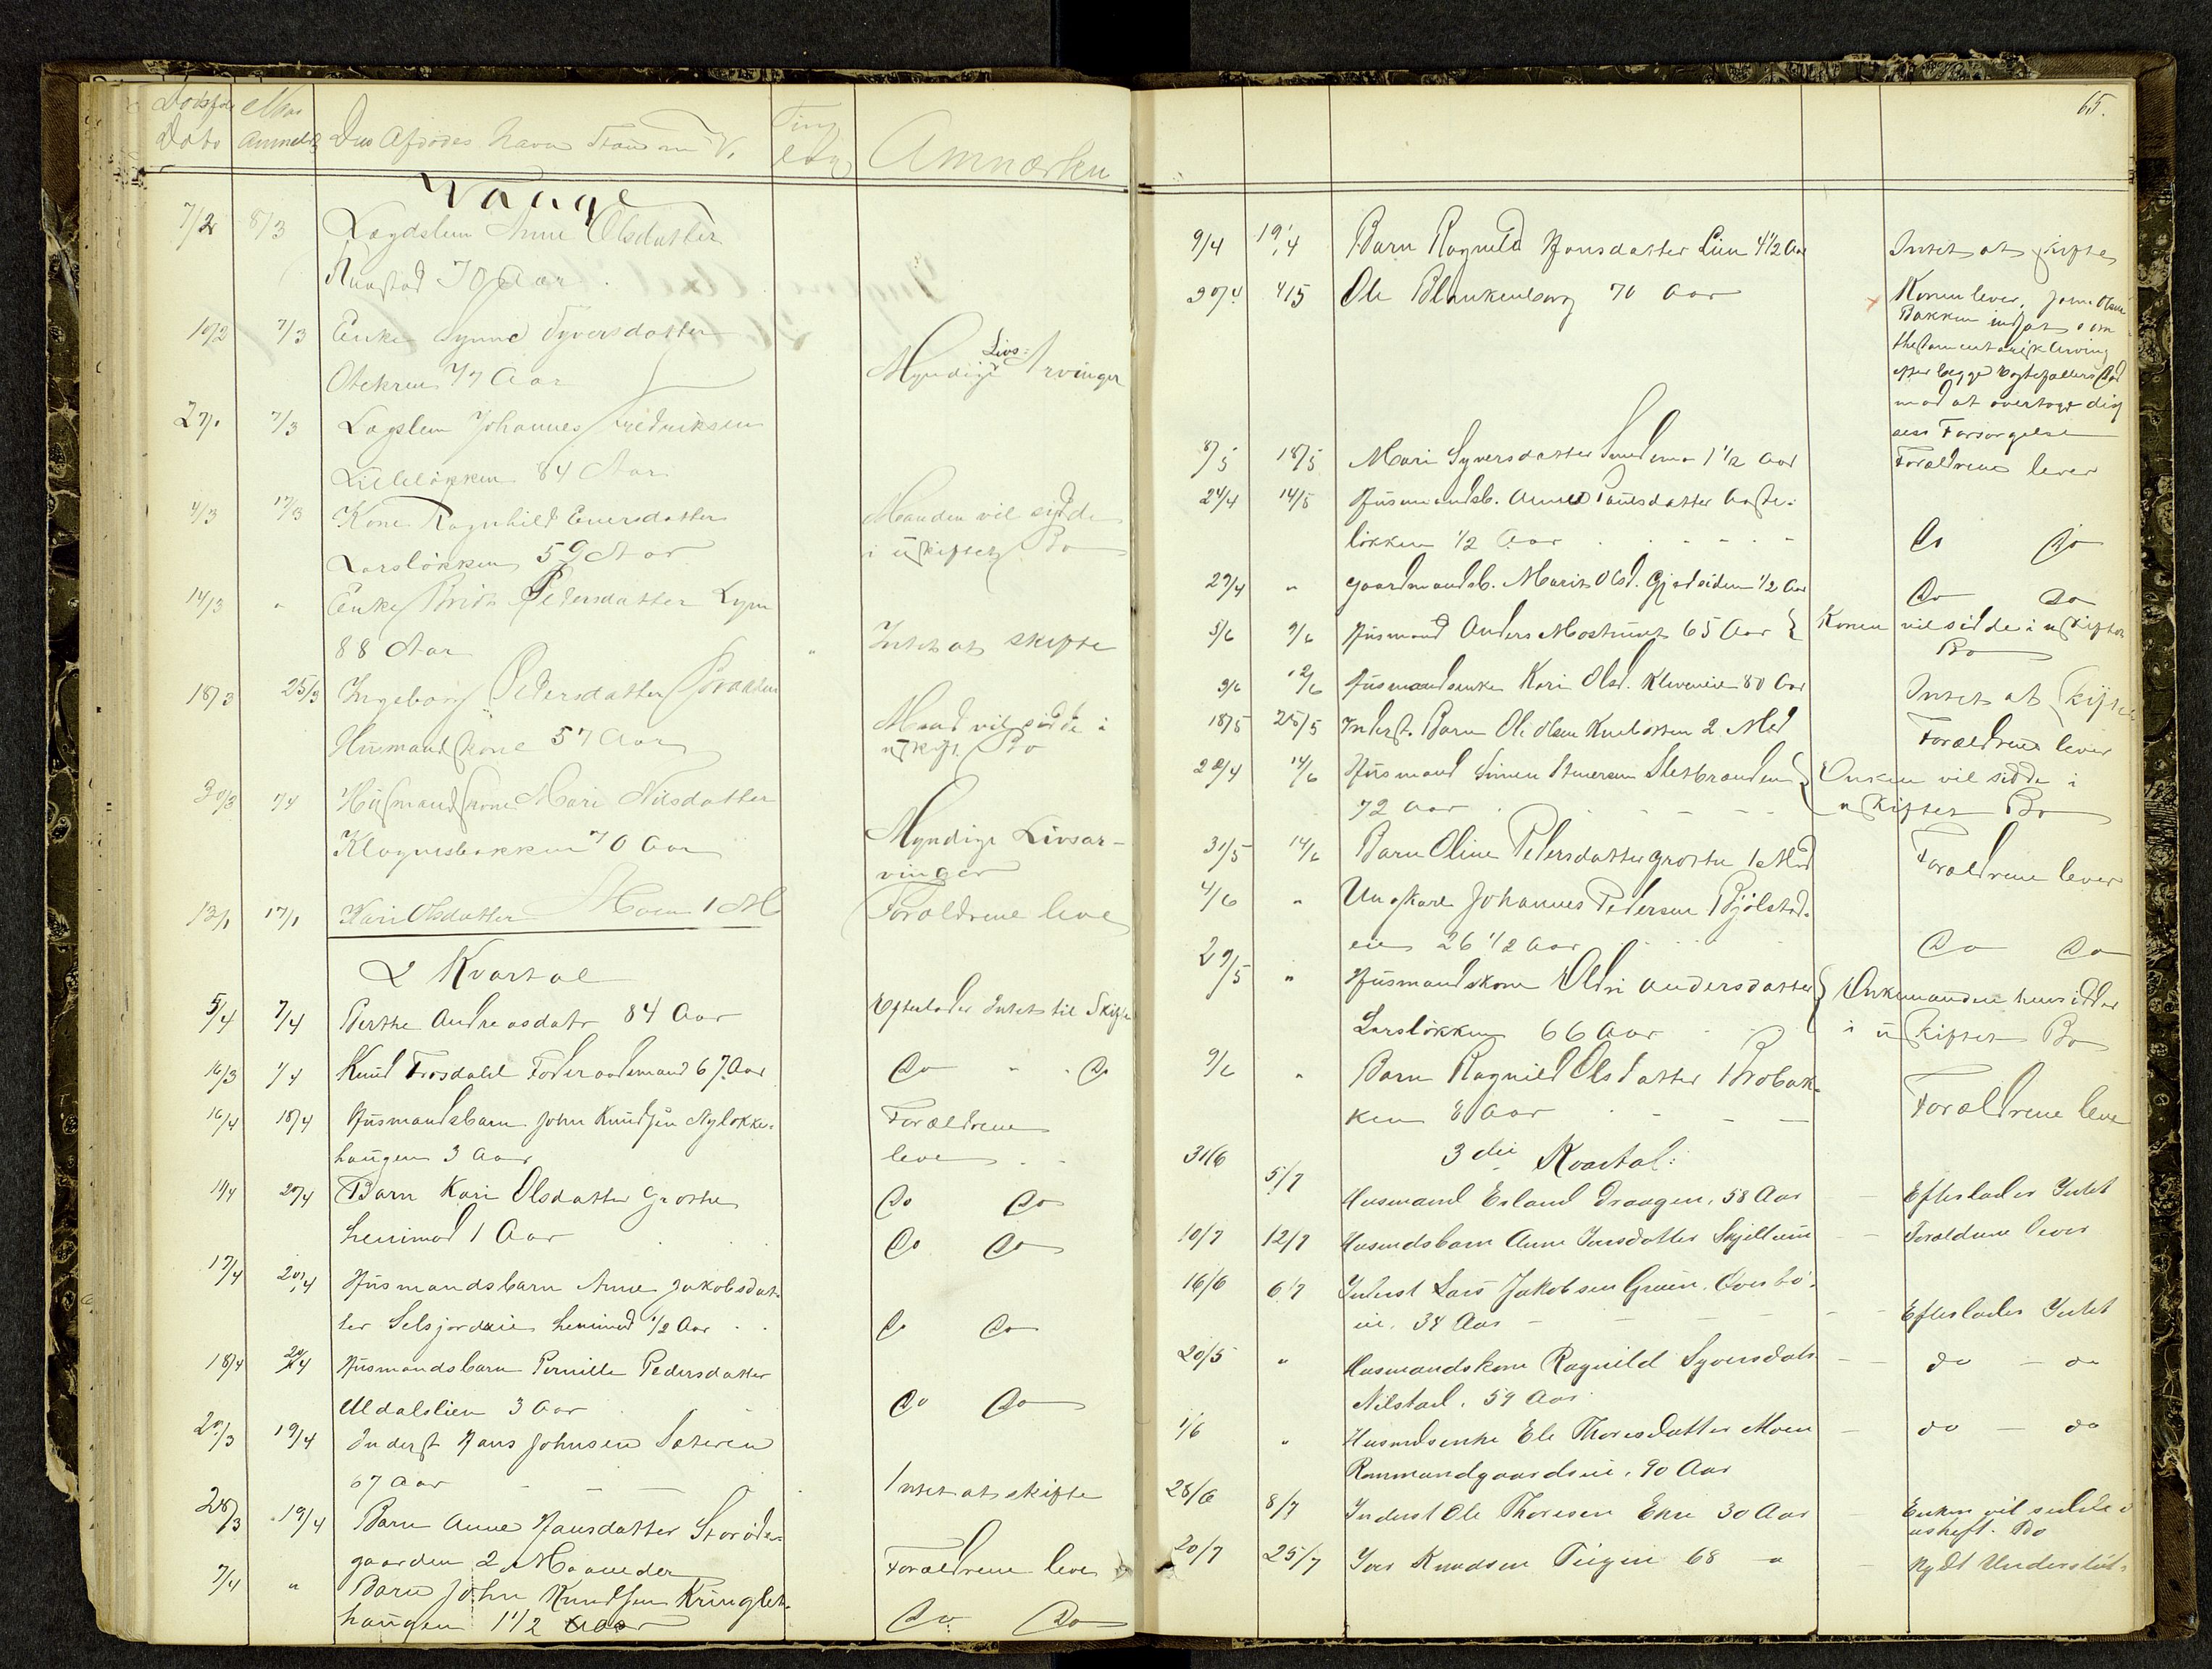 Dødsfalds Naar
Dato anmeldt Den Afdødes Navn Stand m. V. Ting Anmærkn
Vaage
7/2 8/3 Lægdslem Anne Olsdatter
70 Aar
10/2 7/3 Enke Synne Syversdatter
77 Aar Myndige Livs-Arvinger
7/3 Lægslem Johannes Fredriksen
Lilleløkken 84 Aar
4/3 17/3 Kone Ragnhild Enersdatter Manden vil sidde
Larsløkken 59 Aar i uskiftet Bo
14/3 " Enke Pedersdatter
88 Aar " Intet at skifte
18/3 25/3 Ingeborg Pedersdatter Braaten
Husmandskone 57 Aar Mand vil sidde i uskift. Bo
30/3 7/4 Husmandskone Mari Nilsdatter
Klognesbakken 70 Aar Myndige Livsar-
vinger
13/1 17/1 Kari Olsdatter Moen 1 M Forældrene leve
2 Kvartal
5/4 7/4 Berthe Andreasdatr 84 Aar Efterlader Intet til Skifte
16/3 7/4 Knud Frosdahl Føderaadsmand 67 Aar Do " Do
16/4 18/4 Husmandsbarn John Knudsen Nyløkke- Forældrene
haugen 3 Aar leve
11/4 20/4 Barn Kari Olsdatter Grathe Do Do
henimod 1 Aar Do Do
17/4 20/4 Husmandsbarn Anne Jakobsdat-
ter Selsjordeie henimod 1/2 Aar Do Do
18/4 20/4 Husmandsbarn Pernille Pedersdatter
Uldalslien 3 Aar Do Do
20/3 19/4 Inderst Hans Johnsen Sæteren
67 Aar Intet at skifte
28/3 19/4 Barn Anne Hansdatter Storøde-
gaarden 2 Maaneder Forældrene leve
7/4 " Barn John Knudsen Kringlet-
haugen 1 1/2 Aar Do Do
65.
9/4 19/4 Barn Ragnild Hansdatter Lien 4 1/2 Aar Intet at skifte
30/4 4/5 Ole Blankenborg 70 Aar Konen lever, John Olsen
Bakken indsat som
thestamentarisk Arving
efter begge Ægtefællers Død
mod at overtage dis-
ses Forsørgelse
8/5 18/5 Mari Syversdatter 1 1/2 Aar Forældrene lever
24/4 14/5 Husmandsb. Anne Paulsdatter
løkken 1/2 Aar Do Do
29/4 " Gaardmandsb. Marit Olsd. 1/2 Aar Do Do
5/6 9/6 Husmand Anders 65 Aar Konen vil sidde i uskiftet
Bo
9/6 12/6 Husmandsenke Kari Olsd. 80 Aar Intet at skifte
18/5 25/5 Inderst. Barn Ole Olsen 2 Md Forældrene lever
29/4 14/6 Husmand Simen Sletbranden Enken vil sidde i
72 Aar uskiftet Bo
31/5 14/6 Barn Oline Pedersdatter Grothe 1 Md Forældrene lever
4/6 " Ungkarl Johannes Pedersen Bjølstad-
eie 26 1/2 Aar Do Do
29/5 " Husmandskone Oldri Andersdatter Enkemanden hensidder
Larsløkken 66 Aar i uskiftet Bo
9/6 " Barn Ragnild Olsdatter Brobak-
ken 8 Aar Forældrene leve
3die Kvartal:
31/6 5/7 Husmand Erland Draagen, 58 Aar Efterlader Intet
10/7 12/7 Husmdsbarn Anne Iversdatter Skjellum Forældrene lever
16/6 6/7 Inderst Lars Jakobsen Øverbø-
eie. 34 Aar Efterlader Intet
20/5 " Husmandskone Ragnild Syversdatr do - do
Nilstad, 59 Aar
1/6 " Husmdsenke Ele Thoresdatter Moen do - do
Rommundgaardseie, 90 Aar
28/6 8/7 Inderst Ole Thoresen Ekre 30 Aar Enken vil sidde i
uskift. Bo
20/7 25/7 Iver Knudsen 68 - " Nydt Understøt-